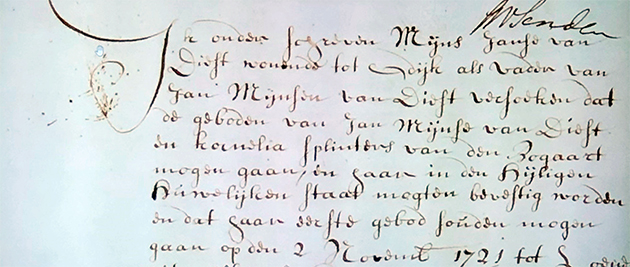 Ik onder schreven Mijns Janse van
Diest wonende tot Dijk als vader van
Jan Mijnsen van Diest versoeken dat
de geboden van Jan Mijnse van Diest
en kornelia splinters van den Bogaart
mogen gaan, en haar in den Hijligen
Huwelijken staat mogten bevestig worden
en dat haar eerste gebod souden mogen
gaan op den 2 Novemb 1721 tot